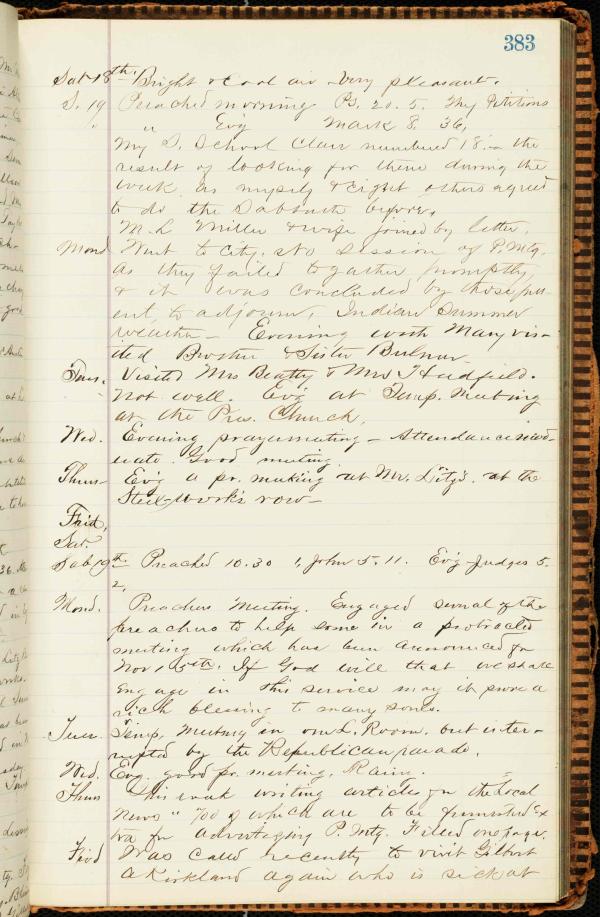 383
Sat 18th. Bright & cool air very pleasant.
S. 19 Preached morning Ps. 20. 5. My Petitions
" " Ev'g Mark 8. 36,
My S. School Class numbered 18:- the
result of looking for them during the
week as myself & eight others agreed
to do the Sabbath before.
M. L Miller & wife joined by letter.
Mond Went to city. No session of P. Mtg.
as they failed to gather promptly
& it was concluded by those pres-
ent to adjourn, Indian Summer
weather - Evening with Mary vis-
ited Brother & Sister Bulmer
Tues. Visited Mrs Beatty & Mrs Hadfield.
Not well. Ev'g at Temp. Meeting
at the Pres. Church.
Wed. Evening prayermeeting - Attendance mod-
erate. Good meeting
Thurs- Ev'g a pr. meeting at Mr. at the
Steel works row-
Frid,
Sat.
Sab 19th Preached 10.30 1, John 5. 11. Ev'g Judges 5.
2,
Mond. Preachers Meeting. Engaged several of the
preachers to help some in a protracted
meeting which has been announced for
Nov 15th. If God will that we shall
engage in this service may it prove a
rich blessing to many souls.
Tues. Temp. Meeting in our L. Room. but inter-
rupted by the Republican parade.
Wed. Evg. good pr. meeting. Rain.
Thurs This week writing articles for the "Local
News" 700 of which are to be furnished ex
tra for advertising P. Mtg. Filled one page.
Frid Was called recently to visit Gilbert
A Kirkland again who is sick at